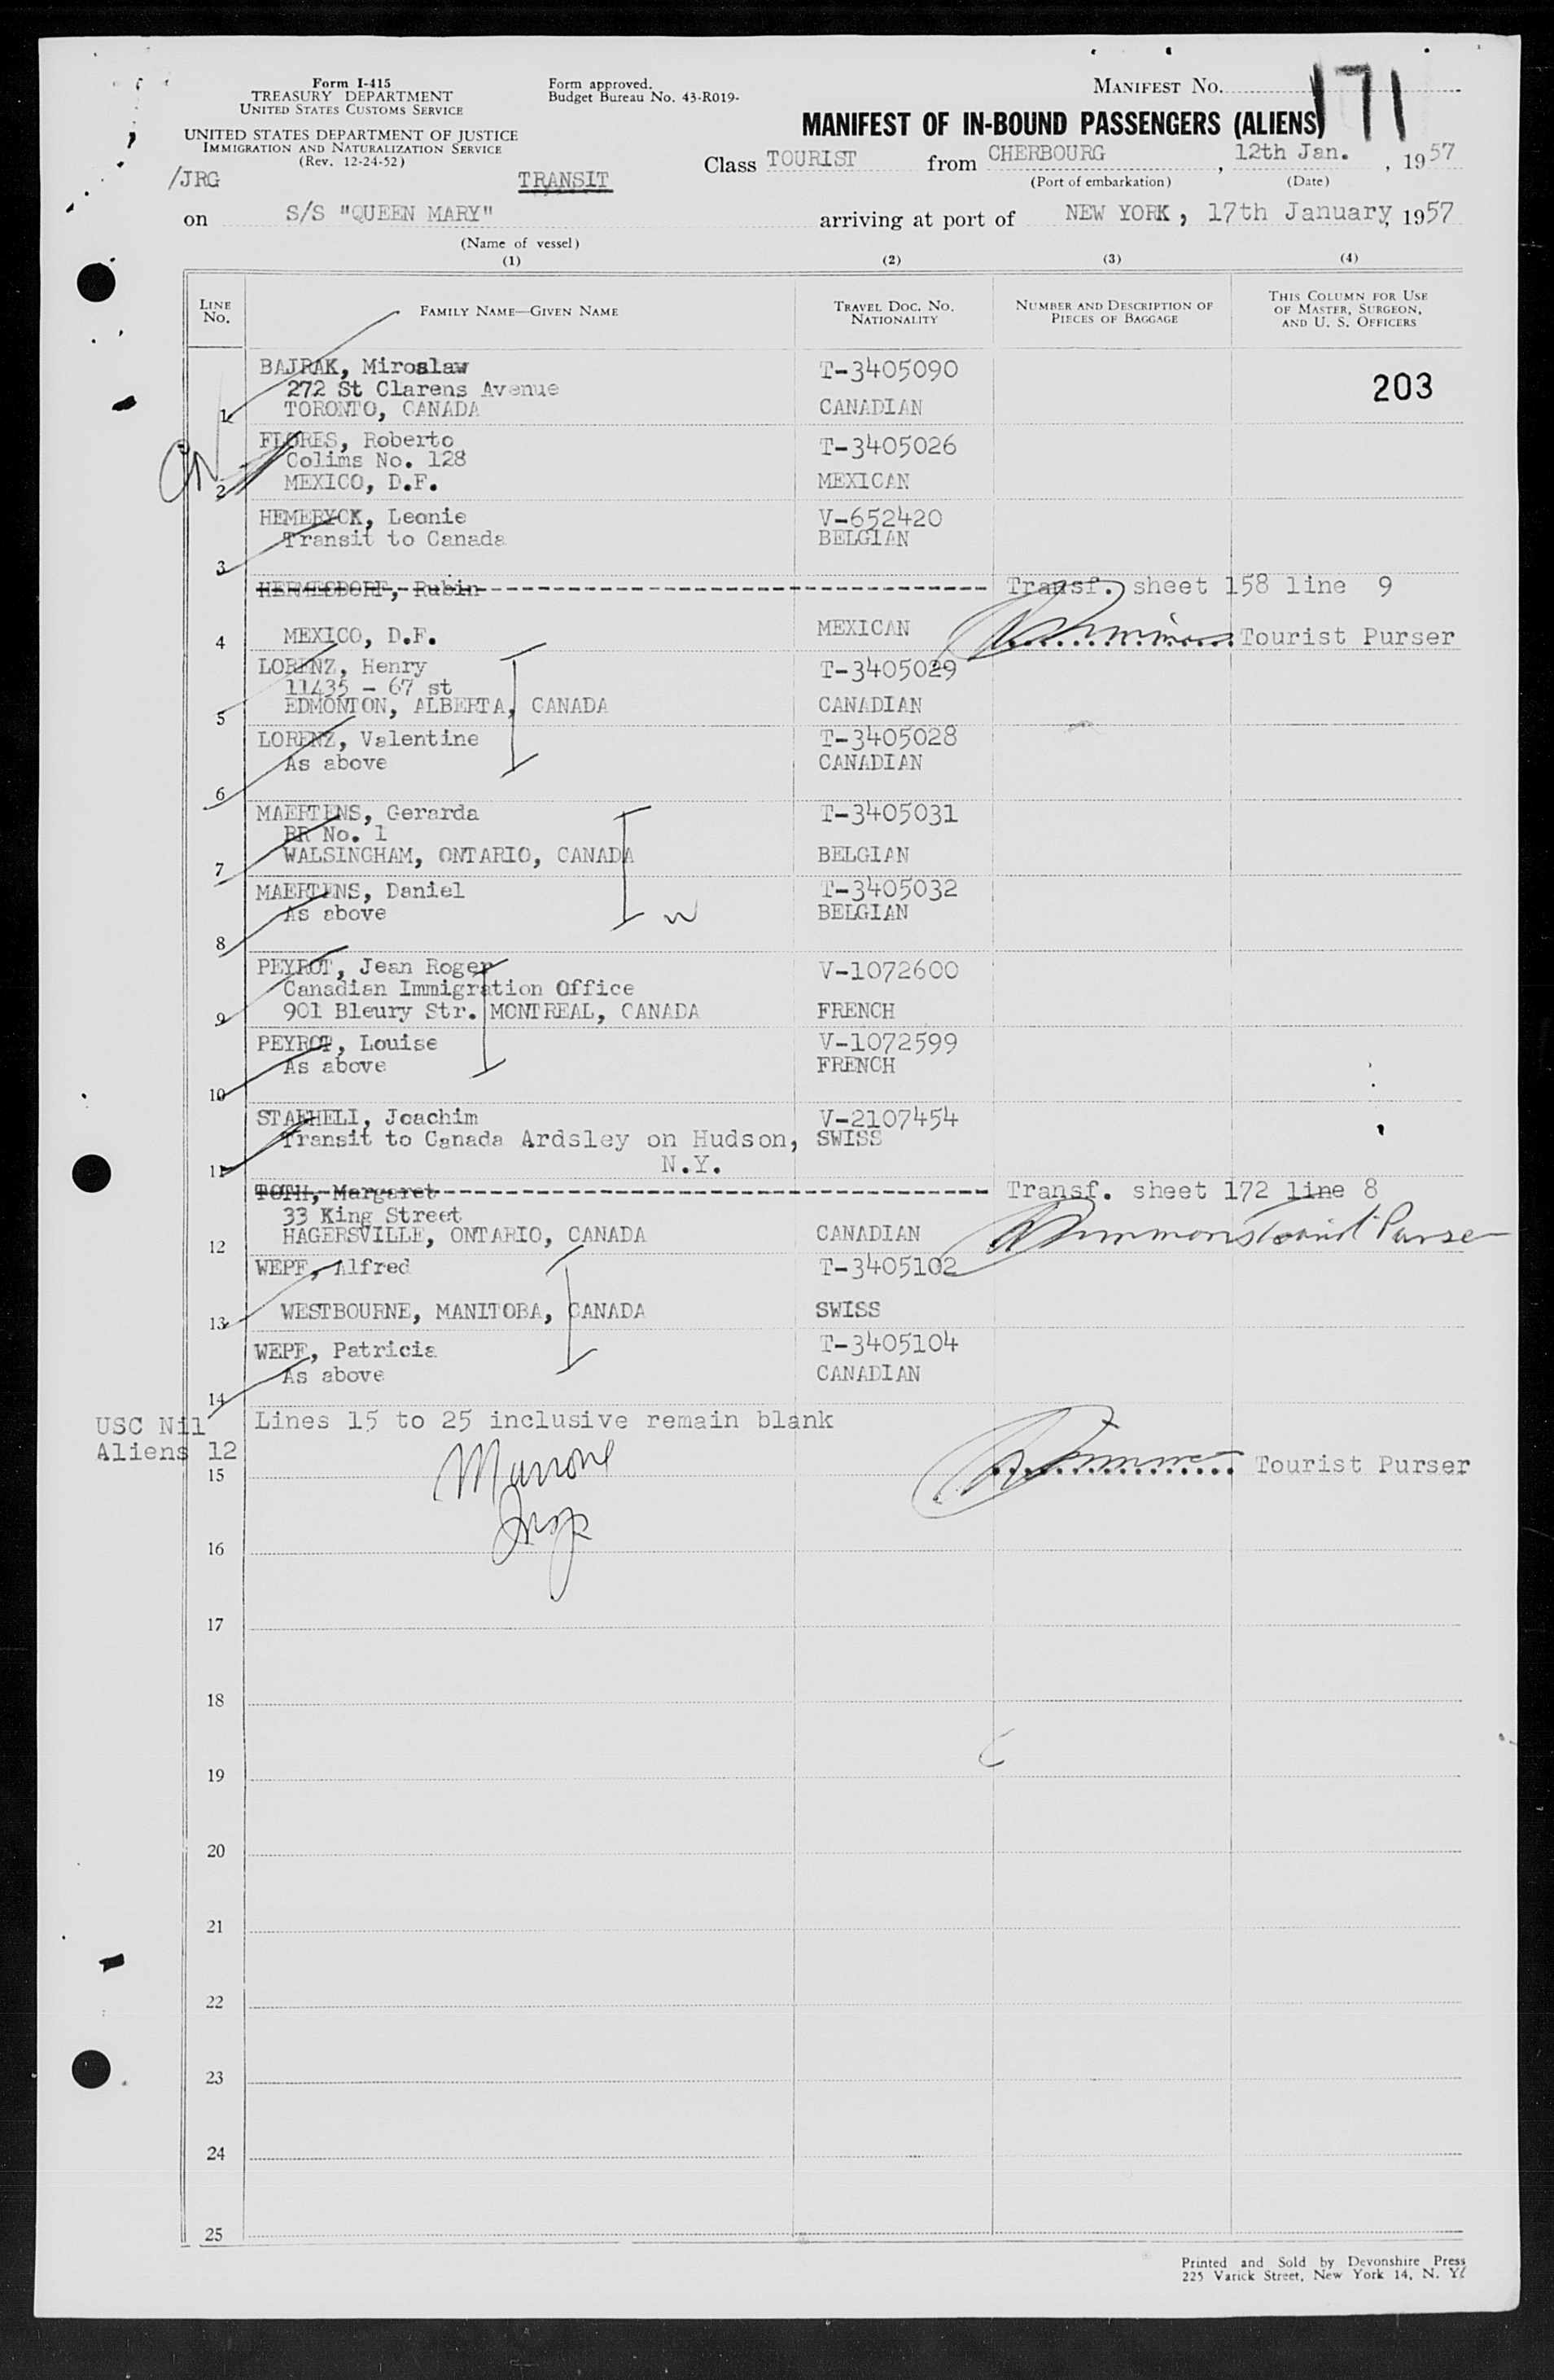 Form I-415
TREASURY DEPARTMENT
UNITED STATES CUSTOMS SERVICE
UNITED STATES DEPARTMENT OF JUSTICE
IMMIGRATION AND NATURALIZATION SERVICE
(Rev. 12-24-52)
Form approved.
Budget Bureau No. 43-R019-
MANIFEST No. 171
MANIFEST OF IN-BOUND PASSENGERS (ALIENS)
/JRG TRANSIT
Class TOURIST from CHERBOURG, 12th Jan., 1957
(Port of embarkation) (Date)
on S/S "QUEEN MARY" arriving at port of NEW YORK, 17th January, 1957
(Name of vessel)
(1) (2) (3) (4)
LINE No. FAMILY NAME—GIVEN NAME TRAVEL DOC. No. NATIONALITY NUMBER AND DESCRIPTION OF PIECES OF BAGGAGE THIS COLUMN FOR USE OF MASTER, SURGEON, AND U. S. OFFICERS
BAJRAK, Miroslaw T-3405090
272 St Clarens Avenue 203
1 TORONTO, CANADA CANADIAN
FLORES, Roberto T-3405026
Colims No. 128
2 MEXICO, D.F. MEXICAN
HEMERYCK, Leonie V-652420
Transit to Canada BELGIAN
3
HERMESDORF, Rubin Transf. sheet 158 line 9
4 MEXICO, D.F. MEXICAN Tourist Purser
LORENZ, Henry T-3405029
11435 - 67 st
5 EDMONTON, ALBERTA, CANADA CANADIAN
LORENZ, Valentine T-3405028
As above CANADIAN
6
MAERTENS, Gerarda T-3405031
RR No. 1
7 WALSINGHAM, ONTARIO, CANADA BELGIAN
MAERTENS, Daniel T-3405032
As above BELGIAN
8
PEYROT, Jean Roger V-1072600
Canadian Immigration Office
9 901 Bleury Str. MONTREAL, CANADA FRENCH
PEYROT, Louise V-1072599
As above FRENCH
10
STAEHELI, Joachim V-2107454
Transit to Canada Ardsley on Hudson, SWISS
11 N.Y.
TOTH, Margaret Transf. sheet 172 line 8
33 King Street
12 HAGERSVILLE, ONTARIO, CANADA CANADIAN Tourist Purser
WEPF, Alfred T-3405102
13 WESTBOURNE, MANITOBA, CANADA SWISS
WEPF, Patricia T-3405104
As above CANADIAN
14
USC Nil Lines 15 to 25 inclusive remain blank
Aliens 12
15 Tourist Purser
16
17
18
19
20
21
22
23
24
25
Printed and Sold by Devonshire Press
225 Varick Street, New York 14, N. Y.